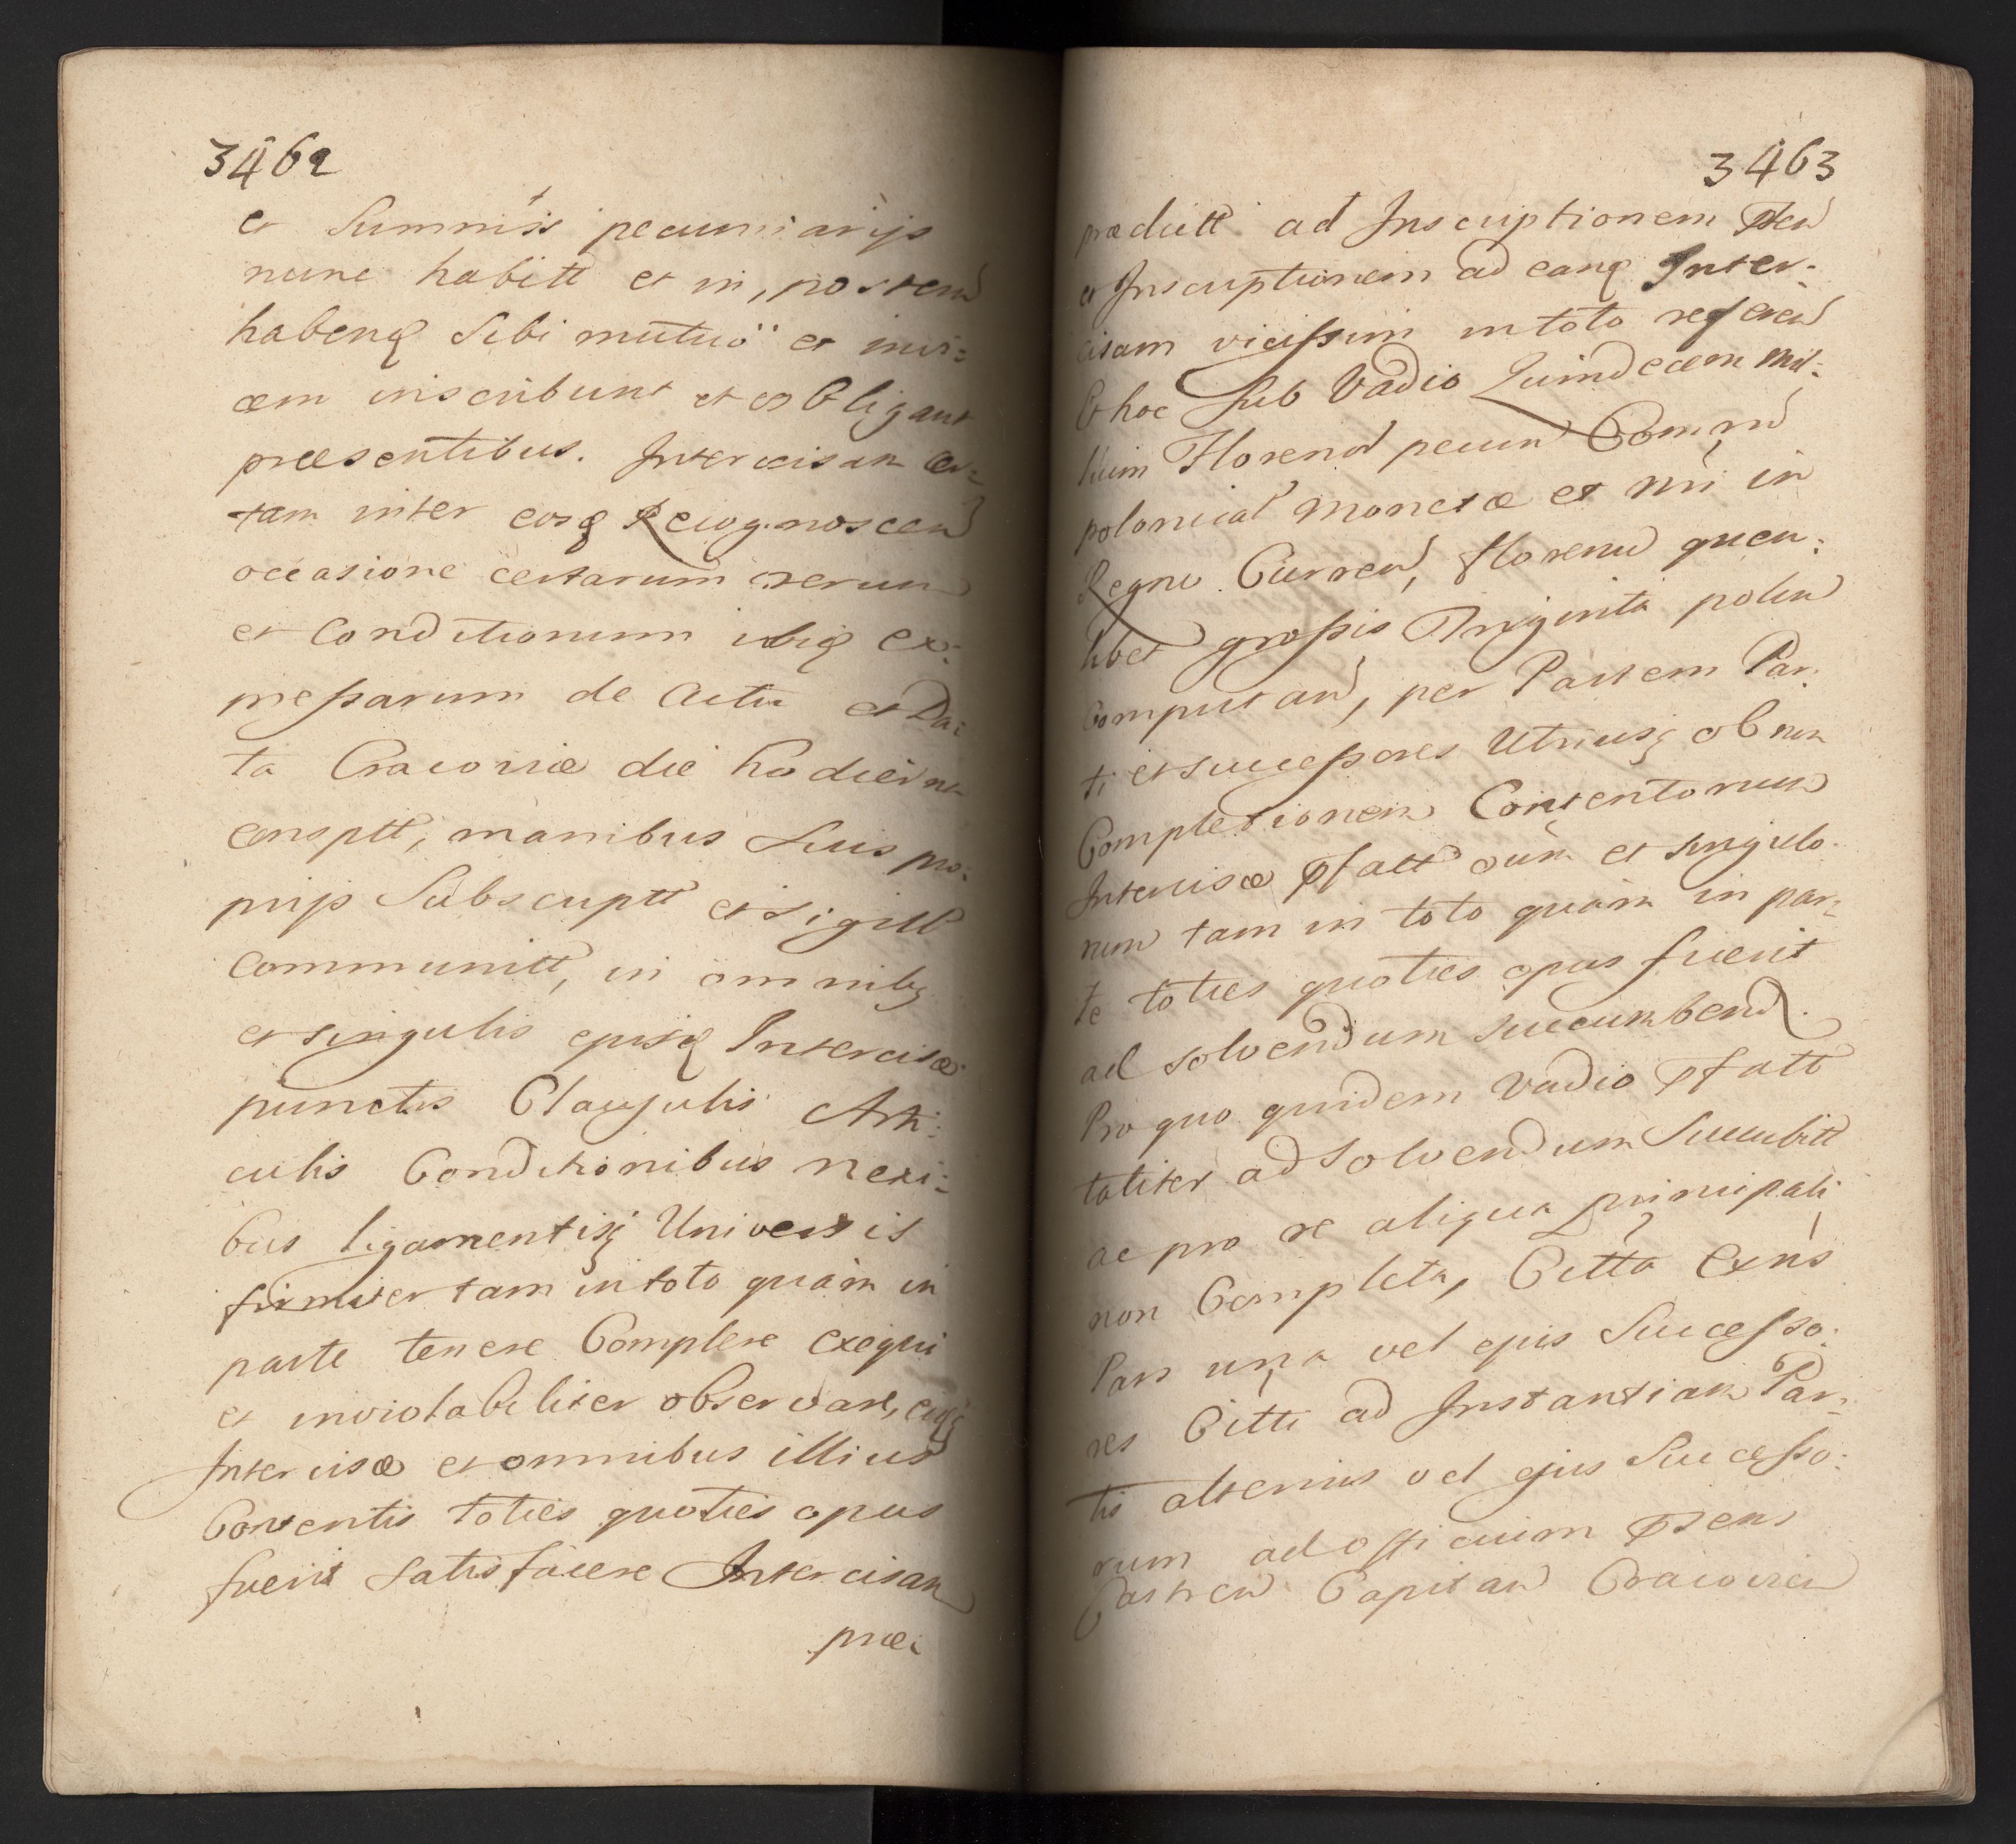 3462
et Summis pecuniarijs
nunc habitt et in, postem
habenq Sibi mutuo et invi:
cem inscribunt et obligant
præsentibus. Intercisam cer:
tam inter eosq Recognoscen
occasione certarum rerum
et Conditionum ibiq ex:
pressarum de Actu et Da:
ta Cracoviæ die hodierna
consptt, manibus Suis pro:
prijs Subscriptt et Sigill
communitt, in omnibq
et singulis ejusq Intercisæ
punctis Clausulis Arti:
culis Conditionibus nexi:
bus ligamentisq Universis
firmiter tam in toto quam in
parte tenere Complere exequi
et inviolabiliter observare, eidq
Intercisæ et omnibus illius
Contentis toties quoties opus
fuerit satisfacere Intercisam
præ:
3463
prædictt ad Inscriptionem Psen
et Inscriptionem ad eanq Inter:
cisam vicissim in toto referen
Et hoc Sub Vadio Quindecem Mil:
lium Florenol pecun Comun
polonical Monetæ et nri in
Regno Curren, florenu quem:
libet grossis Triginta polon
Computan, per Partem Par:
ti et successores Utriusq ob non
Completionem Contentorum
Intercisæ Pfatt oum et singulo:
rum tam in toto quam in par:
te toties quoties opus fuerit
ad solvendum succumbend.
Pro quo quidem Vadio Pfatt
taliter ad Solvendum Succubitt
ac pro re aliqua principali
non Completa, Citta Exns
Pars una vel ejus Successo:
res Citti ad Instantiam Par:
tis alterius vel ejus Successo:
rum ad officium Psens
Castren Capitan Cracovien